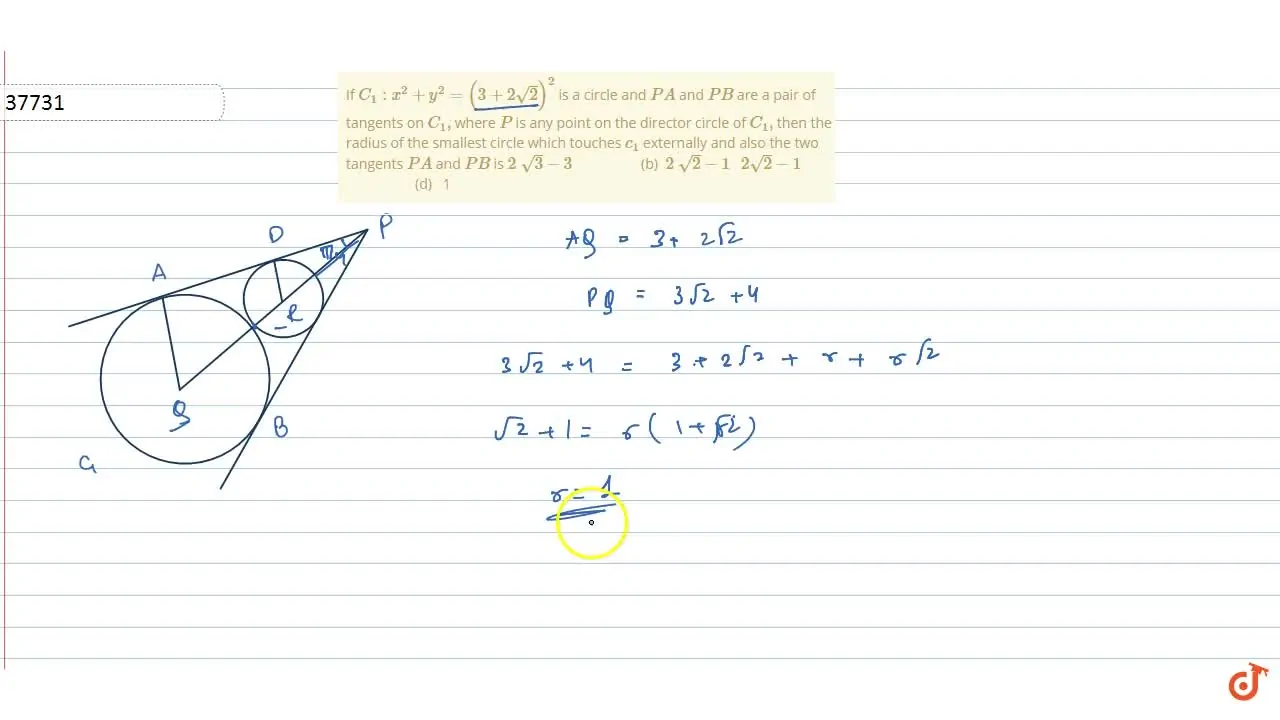 37731
If C₁ : x² + y² = (3 + 2√2)² is a circle and PA and PB are a pair of
tangents on C₁, where P is any point on the director circle of C₁, then the
radius of the smallest circle which touches c₁ externally and also the two
tangents PA and PB is 2 √3 − 3 (b) 2 √2 − 1 2√2 − 1
(d) 1
P
D
A
π/4
R
Q
B
C₁
AQ = 3 + 2√2
PQ = 3√2 + 4
3√2 + 4 = 3 + 2√2 + r + r√2
√2 + 1 = r ( 1 + √2 )
r = 1